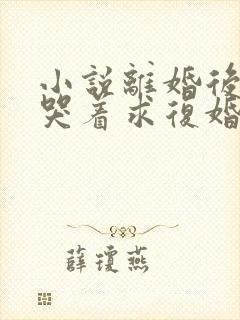 小說離婚後
哭着求復婚
薛瓊燕